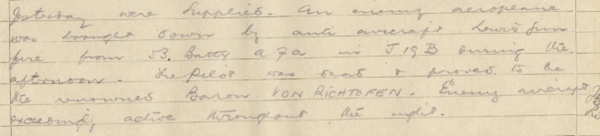 Yesterday were supplied. An enemy aeroplane
was brought down by anti aircraft Lewis Gun
fire from 53. Batty A.F.A. in J 19 B during the
afternoon. The Pilot was dead & proved to be
the renowned Baron VON RICHTOFEN. Enemy aircraft
exceedingly active throughout the night.